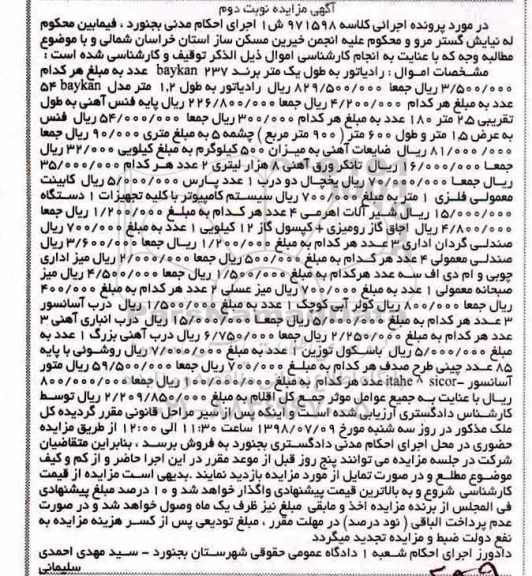 آگهی مزایده نوبت دوم
در مورد پرونده اجرائی کلاسه ۹۷۱۵۹۸ ش۱ اجرای احکام مدنی بجنورد ، فیمابین محکوم
له نیایش گستر مرو و محکوم علیه انجمن خیرین مسکن ساز استان خراسان شمالی و با موضوع
مطالبه وجه که با عنایت به انجام کارشناسی اموال ذیل الذکر توقیف و کارشناسی شده است :
مشخصات اموال : رادیاتور به طول یک متر برند baykan ۲۳۷ عدد به مبلغ هر کدام
۳/۵۰۰/۰۰۰ ریال جمعا ۸۲۹/۵۰۰/۰۰۰ ریال رادیاتور به طول ۱,۲ متر مدل baykan ۵۴
عدد به مبلغ هر کدام ۴/۲۰۰/۰۰۰ ریال جمعا ۲۲۶/۸۰۰/۰۰۰ ریال پایه فنس آهنی به طول
تقریبی ۲,۵ متر ۱۸۰ عدد به مبلغ هر کدام ۳۰۰/۰۰۰ ریال جمعا ۵۴/۰۰۰/۰۰۰ ریال فنس
به عرض ۱,۵ متر و طول ۶۰۰ متر ( ۹۰۰ متر مربع ) چشمه ۵ به مبلغ متری ۹۰/۰۰۰ ریال جمعا
۸۱/۰۰۰/۰۰۰ ریال ضایعات آهنی به میزان ۵۰۰ کیلوگرم به مبلغ کیلویی ۳۲/۰۰۰ ریال
جمعا ۱۶/۰۰۰/۰۰۰ ریال تانکر ورق آهنی ۸ هزار لیتری ۲ عدد هر کدام ۳۵/۰۰۰/۰۰۰
ریال جمعا ۷۰/۰۰۰/۰۰۰ ریال یخچال دو درب ۱ عدد پارس ۵/۰۰۰/۰۰۰ ریال کابینت
معمولی فلزی ۱ متر به مبلغ ۷۰۰/۰۰۰ ریال سیستم کامپیوتر با کلیه تجهیزات ۱ دستگاه
۱۵/۰۰۰/۰۰۰ ریال شیر آلات اهرمی ۴ عدد هر کدام به مبلغ ۱/۲۰۰/۰۰۰ ریال جمعا
۴/۸۰۰/۰۰۰ ریال اجاق گاز رومیزی + کپسول گاز ۱۲ کیلویی ۱ عدد به مبلغ ۷۰۰/۰۰۰ ریال
صندلی گردان اداری ۳ عدد هر کدام به مبلغ ۱/۲۰۰/۰۰۰ ریال جمعا ۳/۶۰۰/۰۰۰ ریال
صندلی معمولی ۴ عدد هر کدام به مبلغ ۵۰۰/۰۰۰ ریال جمعا ۲/۰۰۰/۰۰۰ ریال میز اداری
چوبی و ام دی اف سه عدد هرکدام به مبلغ ۱/۵۰۰/۰۰۰ ریال جمعا ۴/۵۰۰/۰۰۰ ریال میز
صبحانه معمولی ۱ عدد به مبلغ ۷۰۰/۰۰۰ ریال میز عسلی ۲ عدد هر کدام به مبلغ ۴۰۰/۰۰۰
ریال جمعا ۸۰۰/۰۰۰ ریال کولر آبی کوچک ۱ عدد به مبلغ ۱/۵۰۰/۰۰۰ ریال درب آسانسور
۳ عدد هر کدام به مبلغ ۵/۰۰۰/۰۰۰ ریال جمعا ۱۵/۰۰۰/۰۰۰ ریال درب انباری آهنی ۳
عدد هر کدام به مبلغ ۲/۲۵۰/۰۰۰ ریال جمعا ۶/۷۵۰/۰۰۰ ریال درب آهنی بزرگ ۱ عدد به
مبلغ ۵/۰۰۰/۰۰۰ ریال باسکول توزین ۱ عدد به مبلغ ۷/۰۰۰/۰۰۰ ریال روشوئی با پایه
۸۵ عدد چینی طرح صدف هر کدام به مبلغ ۷۰۰/۰۰۰ ریال جمعا ۵۹/۵۰۰/۰۰۰ ریال متور
آسانسور itahe ۸ sicor- عدد هر کدام به مبلغ ۱۰۰/۰۰۰/۰۰۰ ریال جمعا ۸۰۰/۰۰۰/۰۰۰
ریال با عنایت به جمیع عوامل موثر جمع کل اقلام به مبلغ ۲/۲۰۹/۸۵۰/۰۰۰ ریال توسط
کارشناس دادگستری ارزیابی شده است و اینکه پس از سیر مراحل قانونی مقرر گردیده کل
ملک مذکور در روز سه شنبه مورخ ۱۳۹۸/۰۷/۰۹ ساعت ۱۱:۳۰ الی ۱۲:۰۰ از طریق مزایده
حضوری در محل اجرای احکام مدنی دادگستری بجنورد به فروش برسد ، بنابراین متقاضیان
شرکت در جلسه مزایده می توانند پنج روز قبل از موعد مقرر در این اجرا حاضر و از کم و کیف
موضوع مطلع و در صورت تمایل از مورد مزایده بازدید نمایند .بدیهی است مزایده از قیمت
کارشناسی شروع و به بالاترین قیمت پیشنهادی واگذار خواهد شد و ۱۰ درصد مبلغ پیشنهادی
فی المجلس از برنده مزایده اخذ و مابقی مبلغ نیز ظرف یک ماه وصول خواهد شد و در صورت
عدم پرداخت الباقی ( نود درصد) در مهلت مقرر ، مبلغ تودیعی پس از کسر هزینه مزایده به
نفع دولت ضبط و مزایده تجدید میگردد
دادورز اجرای احکام شعبه ۱ دادگاه عمومی حقوقی شهرستان بجنورد – سید مهدی احمدی
سلیمانی